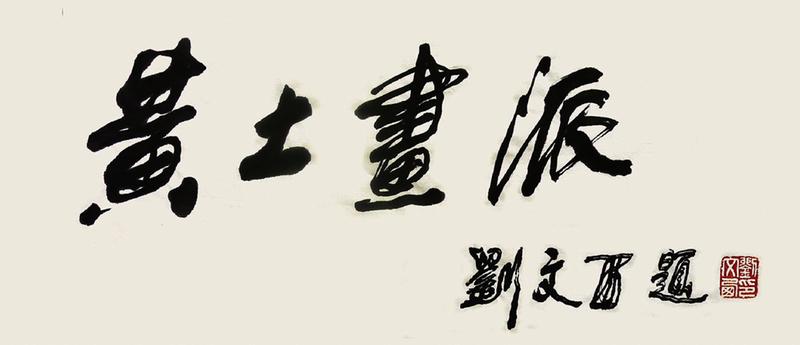 黃土畫派
劉文西題
劉印文西